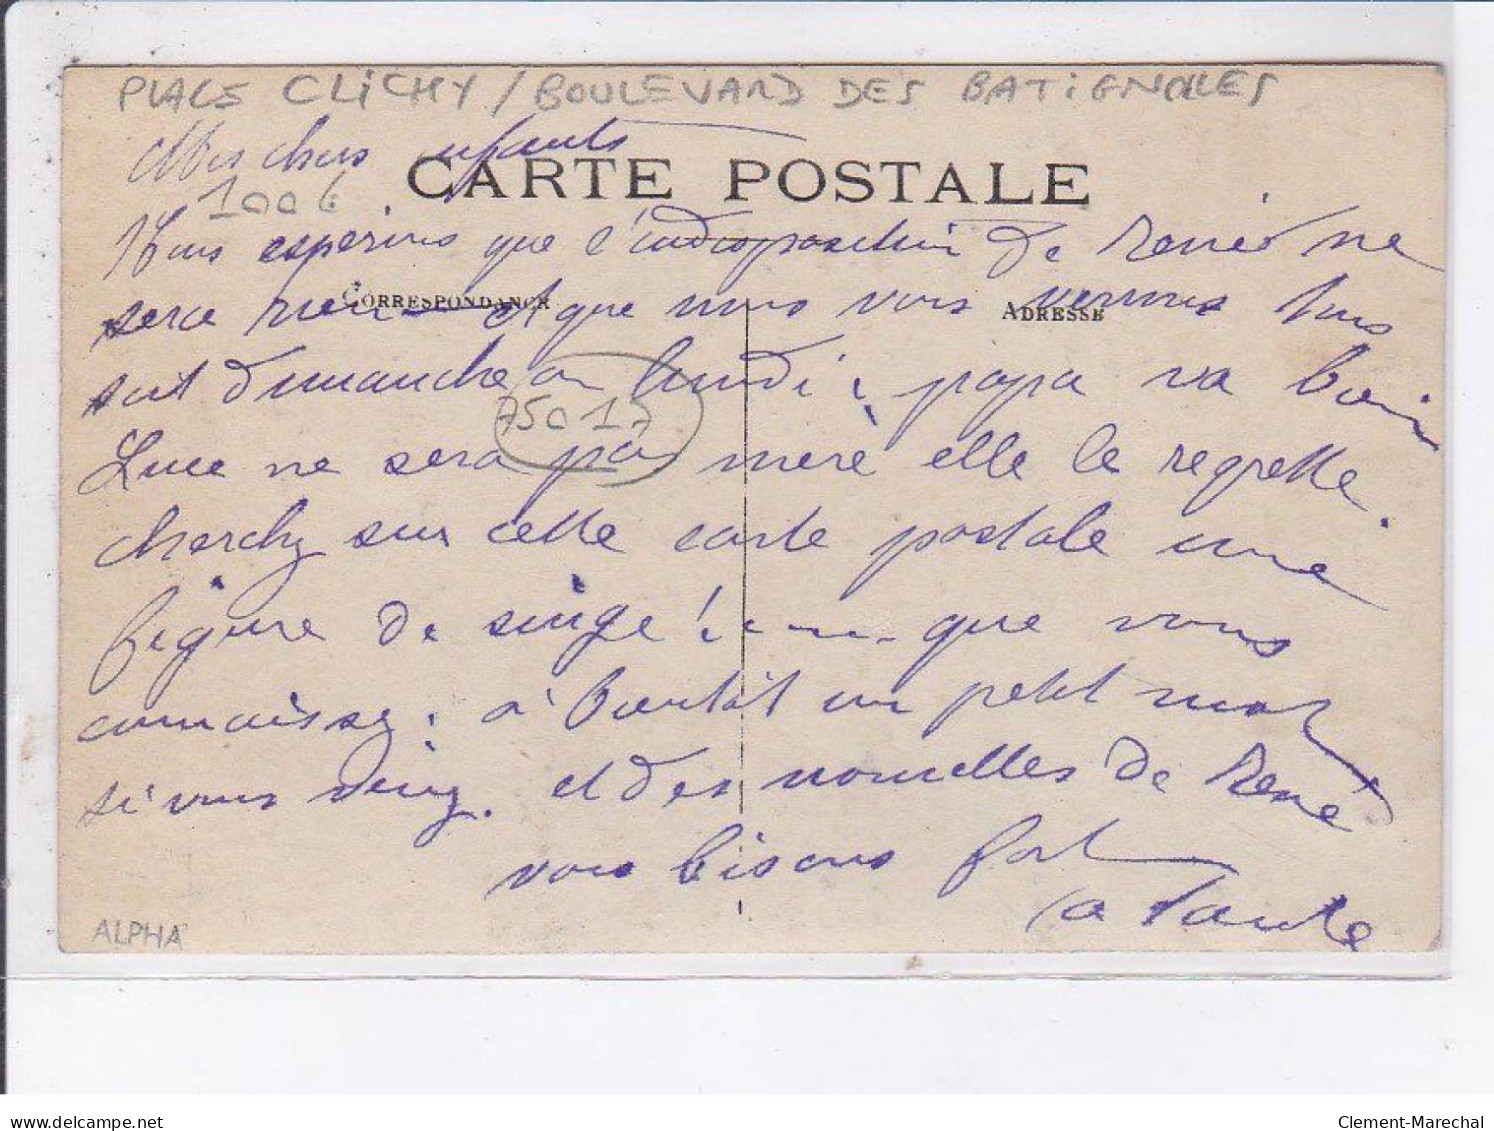 PLACE CLICHY / BOULEVARD DES BATIGNOLLES
Mes chers enfants
CARTE POSTALE
100€
Nous esperons que l'indisposition de Renée ne
CORRESPONDANCE
ADRESSE
sera rien et que nous vous verrons tous
soit dimanche ou lundi; papa va bien
75017
Luce ne sera pas mère elle le regrette.
cherchez sur cette carte postale une
figure de singe! que vous
connaissez: à bientôt un petit mot
si vous venez. et des nouvelles de René
vous bisous fort
la Tante
ALPHA
www.delcampe.net
Clement-Marechal